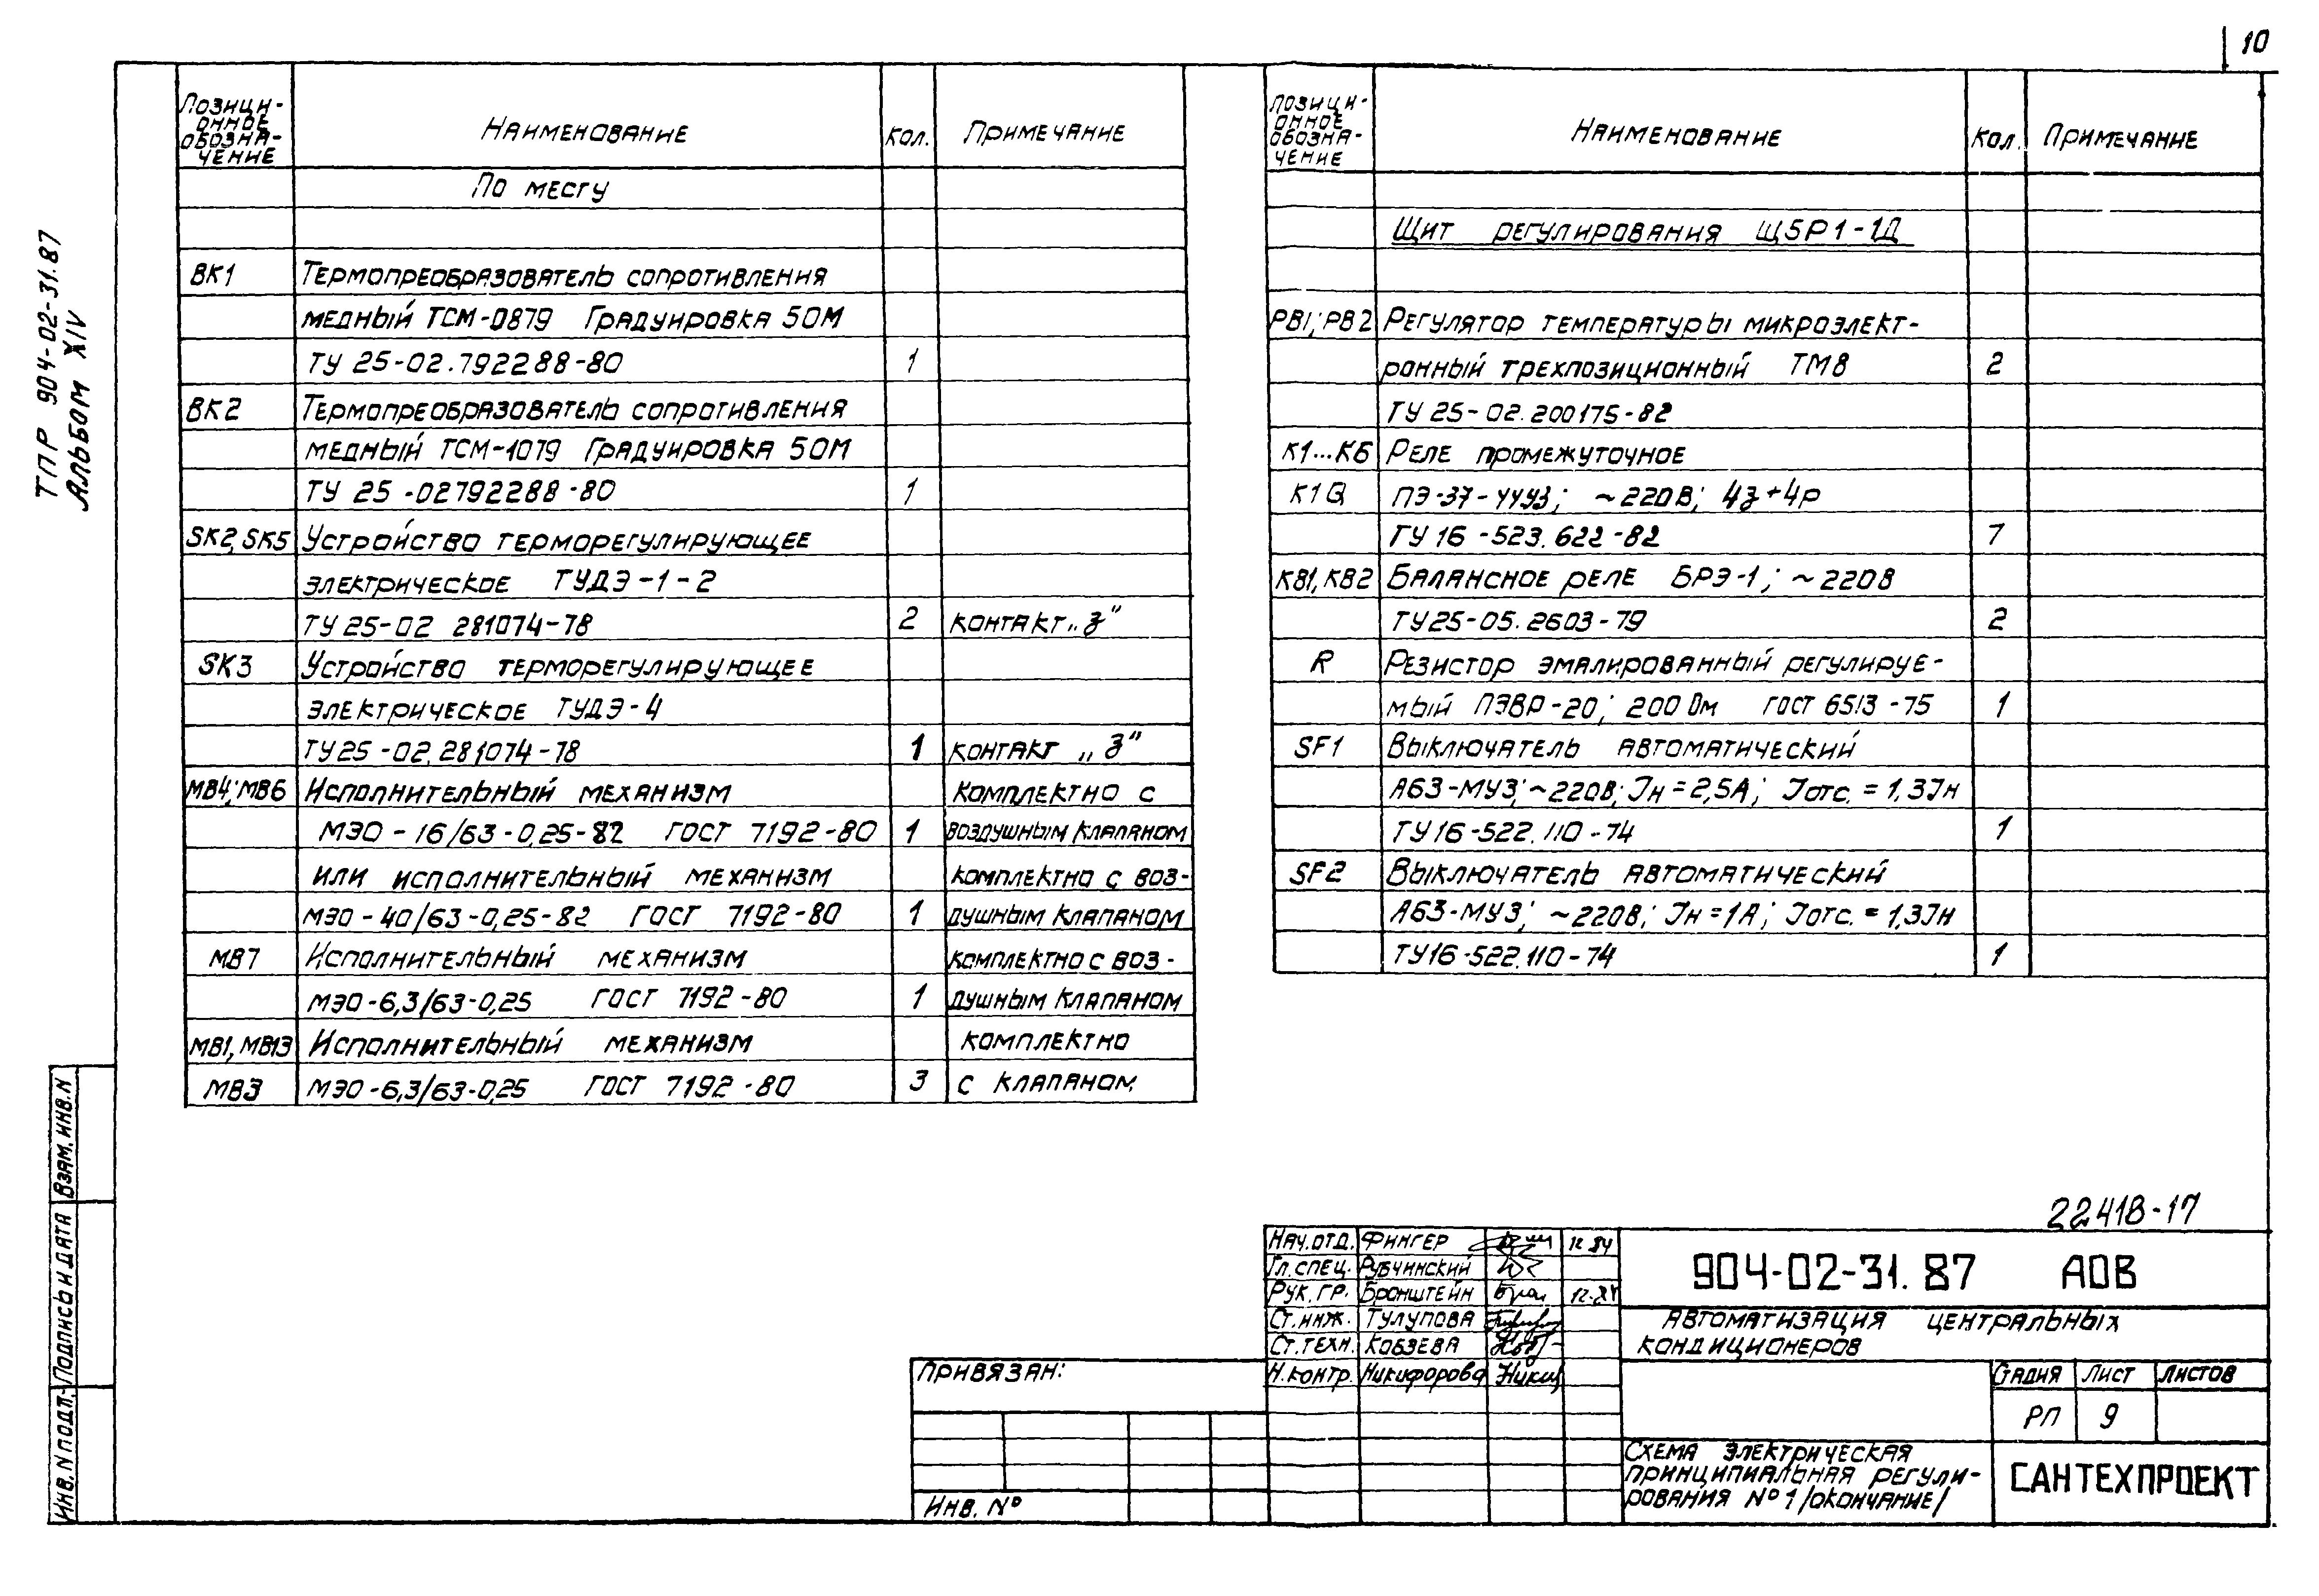 10
ТПР 904-02-31.87
Альбом XIV
Позици-
онное
обозна-
чение
Наименование
Кол.
Примечание
По месту
ВК1 Термопреобразователь сопротивления
медный ТСМ-0879 Градуировка 50М
ТУ 25-02.792288-80 1
ВК2 Термопреобразователь сопротивления
медный ТСМ-1079 Градуировка 50М
ТУ 25-02792288-80 1
SK2, SK5 Устройство терморегулирующее
электрическое ТУДЭ-1-2
ТУ 25-02 281074-78 2 контакт „З"
SK3 Устройство терморегулирующее
электрическое ТУДЭ-4
ТУ 25-02.281074-78 1 контакт „З"
МВ4; МВ6 Исполнительный механизм Комплектно с
МЭО-16/63-0,25-82 ГОСТ 7192-80 1 воздушным клапаном
или исполнительный механизм комплектно с воз-
МЭО-40/63-0,25-82 ГОСТ 7192-80 1 душным клапаном
МВ7 Исполнительный механизм комплектно с воз-
МЭО-6,3/63-0,25 ГОСТ 7192-80 1 душным клапаном
МВ1, МВ13 Исполнительный механизм комплектно
МВ3 МЭО-6,3/63-0,25 ГОСТ 7192-80 3 с клапаном
Позици-
онное
обозна-
чение
Наименование
Кол.
Примечание
Щит регулирования Щ5Р1-1Д
РВ1; РВ2 Регулятор температуры микроэлект-
ронный трехпозиционный ТМ8 2
ТУ 25-02.200175-82
К1...К6 Реле промежуточное
К1Q ПЭ-37-44У3; ~220В; 4з+4р
ТУ 16-523.622-82 7
КВ1, КВ2 Балансное реле БРЭ-1; ~220В
ТУ25-05.2603-79 2
R Резистор эмалированный регулируе-
мый ПЭВР-20; 200 Ом ГОСТ 6513-75 1
SF1 Выключатель автоматический
А63-МУ3; ~220В; Iн=2,5А; Iотс.=1,3Iн
ТУ16-522.110-74 1
SF2 Выключатель автоматический
А63-МУ3; ~220В; Iн=1А; Iотс.=1,3Iн
ТУ16-522.110-74 1
22418-17
Нач.отд. Фингер 12.84
Гл.спец. Рубчинский
Рук.гр. Бронштейн
Ст.инж. Тулупова
Ст.техн. Кобзева
Н.контр. Никифорова
904-02-31.87 АОВ
Автоматизация центральных
кондиционеров
Стадия Лист Листов
РП 9
Схема электрическая
принципиальная регули-
рования №1/окончание/
САНТЕХПРОЕКТ
Привязан:
Инв. №
Взам. инв. N
Подпись и дата
Инв. N подл.